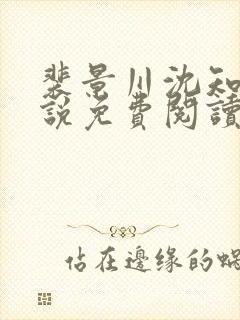 裴景川沈知
說免費閱讀
佔在邊缘的蝸